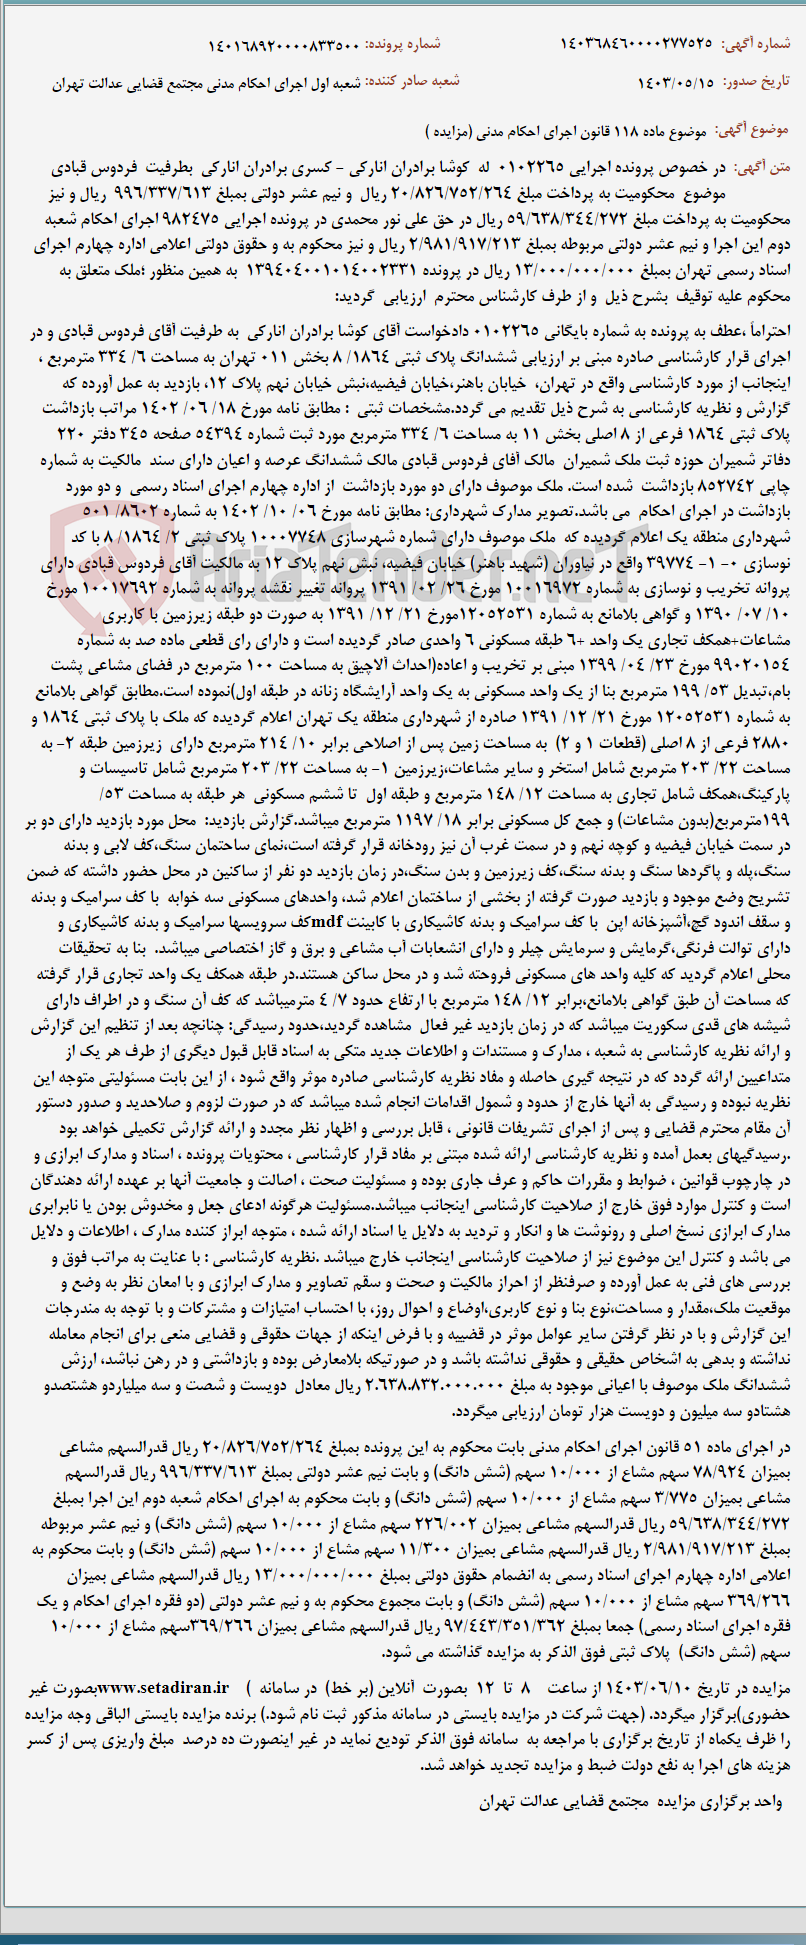 شماره آگهی: ۱۴۰۳۶۸۴۶۰۰۰۰۲۷۷۵۲۵ شماره پرونده: ۱۴۰۱۶۸۹۲۰۰۰۰۸۳۳۵۰۰
تاریخ صدور: ۱۴۰۳/۰۵/۱۵ شعبه صادر کننده: شعبه اول اجرای احکام مدنی مجتمع قضایی عدالت تهران
موضوع آگهی: موضوع ماده ۱۱۸ قانون اجرای احکام مدنی (مزایده )
متن آگهی: در خصوص پرونده اجرایی ۰۱۰۲۲۶۵ له کوشا برادران انارکی - کسری برادران انارکی بطرفیت فردوس قبادی
موضوع محکومیت به پرداخت مبلغ ۲۰/۸۲۶/۷۵۲/۲۶۴ ریال و نیم عشر دولتی بمبلغ ۹۹۶/۳۳۷/۶۱۳ ریال و نیز
محکومیت به پرداخت مبلغ ۵۹/۶۳۸/۳۴۴/۲۷۲ ریال در حق علی نور محمدی در پرونده اجرایی ۹۸۲۴۷۵ اجرای احکام شعبه
دوم این اجرا و نیم عشر دولتی مربوطه بمبلغ ۲/۹۸۱/۹۱۷/۲۱۳ ریال و نیز محکوم به و حقوق دولتی اعلامی اداره چهارم اجرای
اسناد رسمی تهران بمبلغ ۱۳/۰۰۰/۰۰۰/۰۰۰ ریال در پرونده ۱۳۹۴۰۴۰۰۱۰۱۴۰۰۲۳۳۱ به همین منظور ؛ملک متعلق به
محکوم علیه توقیف بشرح ذیل و از طرف کارشناس محترم ارزیابی گردید:
احتراماً ،عطف به پرونده به شماره بایگانی ۰۱۰۲۲۶۵ دادخواست آقای کوشا برادران انارکی به طرفیت آقای فردوس قبادی و در
اجرای قرار کارشناسی صادره مبنی بر ارزیابی ششدانگ پلاک ثبتی ۱۸۶۴/ ۸ بخش ۰۱۱ تهران به مساحت ۶/ ۳۳۴ مترمربع ،
اینجانب از مورد کارشناسی واقع در تهران، خیابان باهنر،خیابان فیضیه،نبش خیابان نهم پلاک ۱۲، بازدید به عمل آورده که
گزارش و نظریه کارشناسی به شرح ذیل تقدیم می گردد.مشخصات ثبتی : مطابق نامه مورخ ۱۸/ ۰۶/ ۱۴۰۲ مراتب بازداشت
پلاک ثبتی ۱۸۶۴ فرعی از ۸ اصلی بخش ۱۱ به مساحت ۶/ ۳۳۴ مترمربع مورد ثبت شماره ۵۴۳۹۴ صفحه ۳۴۵ دفتر ۲۲۰
دفاتر شمیران حوزه ثبت ملک شمیران مالک آقای فردوس قبادی مالک ششدانگ عرصه و اعیان دارای سند مالکیت به شماره
چاپی ۸۵۲۷۴۲ بازداشت شده است. ملک موصوف دارای دو مورد بازداشت از اداره چهارم اجرای اسناد رسمی و دو مورد
بازداشت در اجرای احکام می باشد.تصویر مدارک شهرداری: مطابق نامه مورخ ۰۶/ ۱۰/ ۱۴۰۲ به شماره ۸۶۰۲/ ۵۰۱
شهرداری منطقه یک اعلام گردیده که ملک موصوف دارای شماره شهرسازی ۱۰۰۰۷۷۴۸ پلاک ثبتی ۲/ ۱۸۶۴/ ۸ با کد
نوسازی ۰- ۱- ۳۹۷۷۴ واقع در نیاوران (شهید باهنر) خیابان فیضیه، نبش نهم پلاک ۱۲ به مالکیت آقای فردوس قبادی دارای
پروانه تخریب و نوسازی به شماره ۱۰۰۱۶۹۷۲ مورخ ۲۶/ ۰۲/ ۱۳۹۱ پروانه تغییر نقشه پروانه به شماره ۱۰۰۱۷۶۹۲ مورخ
۱۰/ ۰۷/ ۱۳۹۰ و گواهی بلامانع به شماره ۱۲۰۵۲۵۳۱مورخ ۲۱/ ۱۲/ ۱۳۹۱ به صورت دو طبقه زیرزمین با کاربری
مشاعات+همکف تجاری یک واحد +۶ طبقه مسکونی ۶ واحدی صادر گردیده است و دارای رای قطعی ماده صد به شماره
۹۹۰۲۰۱۵۴ مورخ ۲۳/ ۰۴/ ۱۳۹۹ مبنی بر تخریب و اعاده(احداث آلاچیق به مساحت ۱۰۰ مترمربع در فضای مشاعی پشت
بام،تبدیل ۵۳/ ۱۹۹ مترمربع بنا از یک واحد مسکونی به یک واحد آرایشگاه زنانه در طبقه اول)نموده است.مطابق گواهی بلامانع
به شماره ۱۲۰۵۲۵۳۱ مورخ ۲۱/ ۱۲/ ۱۳۹۱ صادره از شهرداری منطقه یک تهران اعلام گردیده که ملک با پلاک ثبتی ۱۸۶۴ و
۲۸۸۰ فرعی از ۸ اصلی (قطعات ۱ و ۲) به مساحت زمین پس از اصلاحی برابر ۱۰/ ۲۱۴ مترمربع دارای زیرزمین طبقه ۲- به
مساحت ۲۲/ ۲۰۳ مترمربع شامل استخر و سایر مشاعات،زیرزمین ۱- به مساحت ۲۲/ ۲۰۳ مترمربع شامل تاسیسات و
پارکینگ،همکف شامل تجاری به مساحت ۱۲/ ۱۴۸ مترمربع و طبقه اول تا ششم مسکونی هر طبقه به مساحت ۵۳/
۱۹۹مترمربع(بدون مشاعات) و جمع کل مسکونی برابر ۱۸/ ۱۱۹۷ مترمربع میباشد.گزارش بازدید: محل مورد بازدید دارای دو بر
در سمت خیابان فیضیه و کوچه نهم و در سمت غرب آن نیز رودخانه قرار گرفته است،نمای ساختمان سنگ،کف لابی و بدنه
سنگ،پله و پاگردها سنگ و بدنه سنگ،کف زیرزمین و بدن سنگ،در زمان بازدید دو نفر از ساکنین در محل حضور داشته که ضمن
تشریح وضع موجود و بازدید صورت گرفته از بخشی از ساختمان اعلام شد، واحدهای مسکونی سه خوابه با کف سرامیک و بدنه
و سقف اندود گچ،آشپزخانه اپن با کف سرامیک و بدنه کاشیکاری با کابینت mdfکف سرویسها سرامیک و بدنه کاشیکاری و
دارای توالت فرنگی،گرمایش و سرمایش چیلر و دارای انشعابات آب مشاعی و برق و گاز اختصاصی میباشد. بنا به تحقیقات
محلی اعلام گردید که کلیه واحد های مسکونی فروخته شد و در محل ساکن هستند.در طبقه همکف یک واحد تجاری قرار گرفته
که مساحت آن طبق گواهی بلامانع،برابر ۱۲/ ۱۴۸ مترمربع با ارتفاع حدود ۷/ ۴ مترمیباشد که کف آن سنگ و در اطراف دارای
شیشه های قدی سکوریت میباشد که در زمان بازدید غیر فعال مشاهده گردید،حدود رسیدگی: چنانچه بعد از تنظیم این گزارش
و ارائه نظریه کارشناسی به شعبه ، مدارک و مستندات و اطلاعات جدید متکی به اسناد قابل قبول دیگری از طرف هر یک از
متداعیین ارائه گردد که در نتیجه گیری حاصله و مفاد نظریه کارشناسی صادره موثر واقع شود ، از این بابت مسئولیتی متوجه این
نظریه نبوده و رسیدگی به آنها خارج از حدود و شمول اقدامات انجام شده میباشد که در صورت لزوم و صلاحدید و صدور دستور
آن مقام محترم قضایی و پس از اجرای تشریفات قانونی ، قابل بررسی و اظهار نظر مجدد و ارائه گزارش تکمیلی خواهد بود
.رسیدگیهای بعمل آمده و نظریه کارشناسی ارائه شده مبتنی بر مفاد قرار کارشناسی ، محتویات پرونده ، اسناد و مدارک ابرازی و
در چارچوب قوانین ، ضوابط و مقررات حاکم و عرف جاری بوده و مسئولیت صحت ، اصالت و جامعیت آنها بر عهده ارائه دهندگان
است و کنترل موارد فوق خارج از صلاحیت کارشناسی اینجانب میباشد.مسئولیت هرگونه ادعای جعل و مخدوش بودن یا نابرابری
مدارک ابرازی نسخ اصلی و رونوشت ها و انکار و تردید به دلایل یا اسناد ارائه شده ، متوجه ابراز کننده مدارک ، اطلاعات و دلایل
می باشد و کنترل این موضوع نیز از صلاحیت کارشناسی اینجانب خارج میباشد .نظریه کارشناسی : با عنایت به مراتب فوق و
بررسی های فنی به عمل آورده و صرفنظر از احراز مالکیت و صحت و سقم تصاویر و مدارک ابرازی و با امعان نظر به وضع و
موقعیت ملک،مقدار و مساحت،نوع بنا و نوع کاربری،اوضاع و احوال روز، با احتساب امتیازات و مشترکات و با توجه به مندرجات
این گزارش و با در نظر گرفتن سایر عوامل موثر در قضییه و با فرض اینکه از جهات حقوقی و قضایی منعی برای انجام معامله
نداشته و بدهی به اشخاص حقیقی و حقوقی نداشته باشد و در صورتیکه بلامعارض بوده و بازداشتی و در رهن نباشد، ارزش
ششدانگ ملک موصوف با اعیانی موجود به مبلغ ۲.۶۳۸.۸۳۲.۰۰۰.۰۰۰ ریال معادل دویست و شصت و سه میلیاردو هشتصدو
هشتادو سه میلیون و دویست هزار تومان ارزیابی میگردد.
در اجرای ماده ۵۱ قانون اجرای احکام مدنی بابت محکوم به این پرونده بمبلغ ۲۰/۸۲۶/۷۵۲/۲۶۴ ریال قدرالسهم مشاعی
بمیزان ۷۸/۹۲۴ سهم مشاع از ۱۰/۰۰۰ سهم (شش دانگ) و بابت نیم عشر دولتی بمبلغ ۹۹۶/۳۳۷/۶۱۳ ریال قدرالسهم
مشاعی بمیزان ۳/۷۷۵ سهم مشاع از ۱۰/۰۰۰ سهم (شش دانگ) و بابت محکوم به اجرای احکام شعبه دوم این اجرا بمبلغ
۵۹/۶۳۸/۳۴۴/۲۷۲ ریال قدرالسهم مشاعی بمیزان ۲۲۶/۰۰۲ سهم مشاع از ۱۰/۰۰۰ سهم (شش دانگ) و نیم عشر مربوطه
بمبلغ ۲/۹۸۱/۹۱۷/۲۱۳ ریال قدرالسهم مشاعی بمیزان ۱۱/۳۰۰ سهم مشاع از ۱۰/۰۰۰ سهم (شش دانگ) و بابت محکوم به
اعلامی اداره چهارم اجرای اسناد رسمی به انضمام حقوق دولتی بمبلغ ۱۳/۰۰۰/۰۰۰/۰۰۰ ریال قدرالسهم مشاعی بمیزان
۳۶۹/۲۶۶ سهم مشاع از ۱۰/۰۰۰ سهم (شش دانگ) و بابت مجموع محکوم به و نیم عشر دولتی (دو فقره اجرای احکام و یک
فقره اجرای اسناد رسمی) جمعا بمبلغ ۹۷/۴۴۳/۳۵۱/۳۶۲ ریال قدرالسهم مشاعی بمیزان ۳۶۹/۲۶۶سهم مشاع از ۱۰/۰۰۰
سهم (شش دانگ) پلاک ثبتی فوق الذکر به مزایده گذاشته می شود.
مزایده در تاریخ ۱۴۰۳/۰۶/۱۰ از ساعت ۸ تا ۱۲ بصورت آنلاین (بر خط) در سامانه ( www.setadiran.irبصورت غیر
حضوری)برگزار میگردد. (جهت شرکت در مزایده بایستی در سامانه مذکور ثبت نام شود.) برنده مزایده بایستی الباقی وجه مزایده
را ظرف یکماه از تاریخ برگزاری با مراجعه به سامانه فوق الذکر تودیع نماید در غیر اینصورت ده درصد مبلغ واریزی پس از کسر
هزینه های اجرا به نفع دولت ضبط و مزایده تجدید خواهد شد.
واحد برگزاری مزایده مجتمع قضایی عدالت تهران
AriaTender.neT